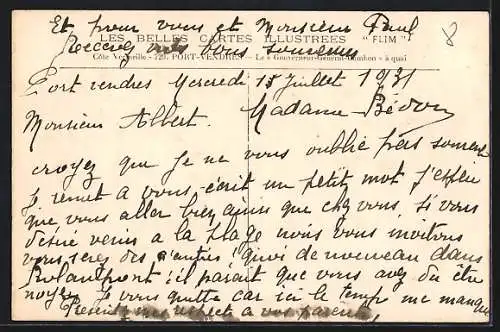 Et pour vous et Monsieur Paul
Recevez nos bons souvenirs
LES BELLES CARTES ILLUSTREES "FLIM"
Côte Vermeille - 729. PORT-VENDRES - Le « Gouverneur-Général-Cambon » à quai
8
Port vendres Mercredi 15 Juillet 1931
Monsieur Albert. Madame
croyez que Je ne vous oublie pas souvent
Je remet a vous écrit un petit mot J'espère
que vous aller bien ainsi que chez vous. Si vous
désiré venir a la plage nous vous invitons
vous serez des notres! Quoi de nouveau dans
il parait que vous avez du être
noyer. Je vous quitte car ici le temps me manque
respect a vos parents